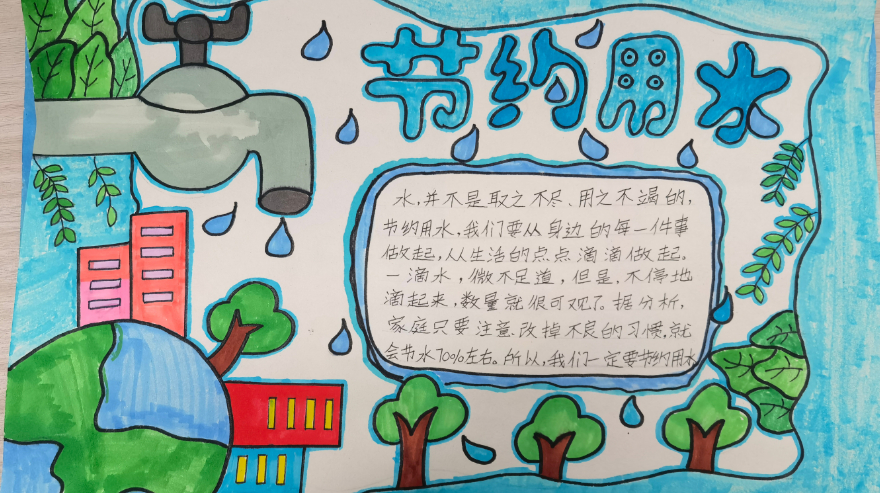 节约用水
水,并不是取之不尽、用之不竭的,
节约用水,我们要从身边的每一件事
做起,从生活的点点滴滴做起。
一滴水,微不足道,但是,不停地
滴起来,数量就很可观了。据分析,
家庭只要注意改掉不良的习惯,就
会节水70%左右。所以,我们一定要节约用水